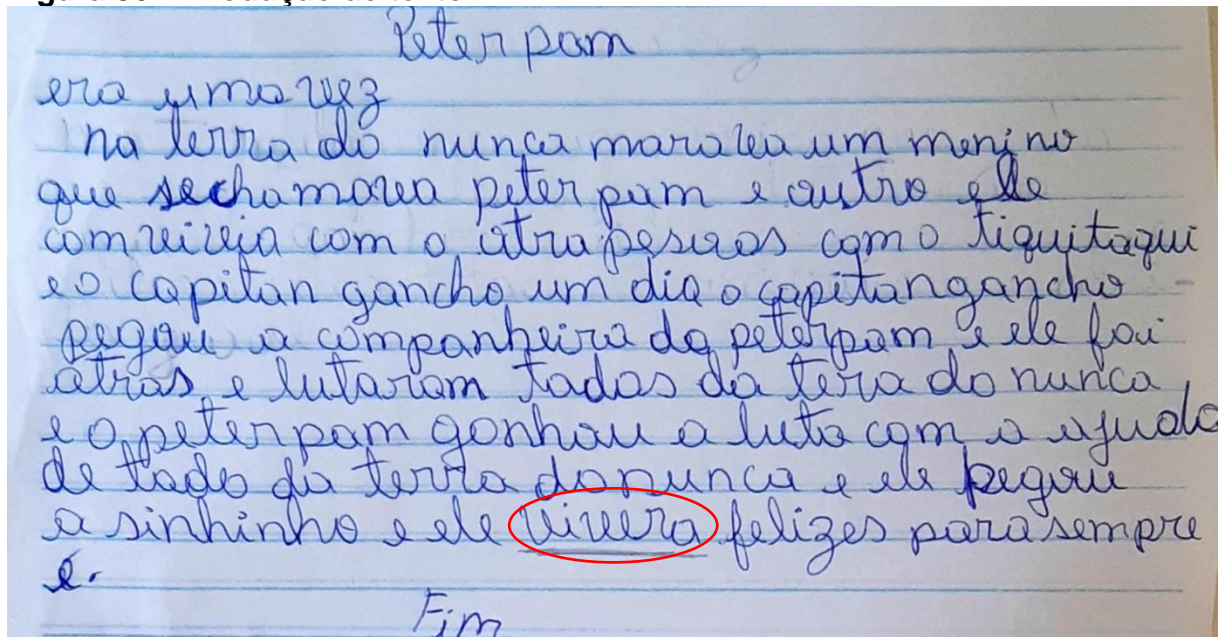 Peter pam
era uma vez
na terra do nunca morava um menino
que sechamava peter pam e outro ele
comvivia com o otra pesoas como tiquitaqui
e o capitan gancho um dia o capitan gancho
pegou a companheira do peter pam e ele foi
atras e lutaram todos da tera do nunca
e o peter pam gonhou a luta com a ajuda
de todo da terra do nunca e ele pegou
a sinhinho e ele vivera felizes para sempre
e.
Fim